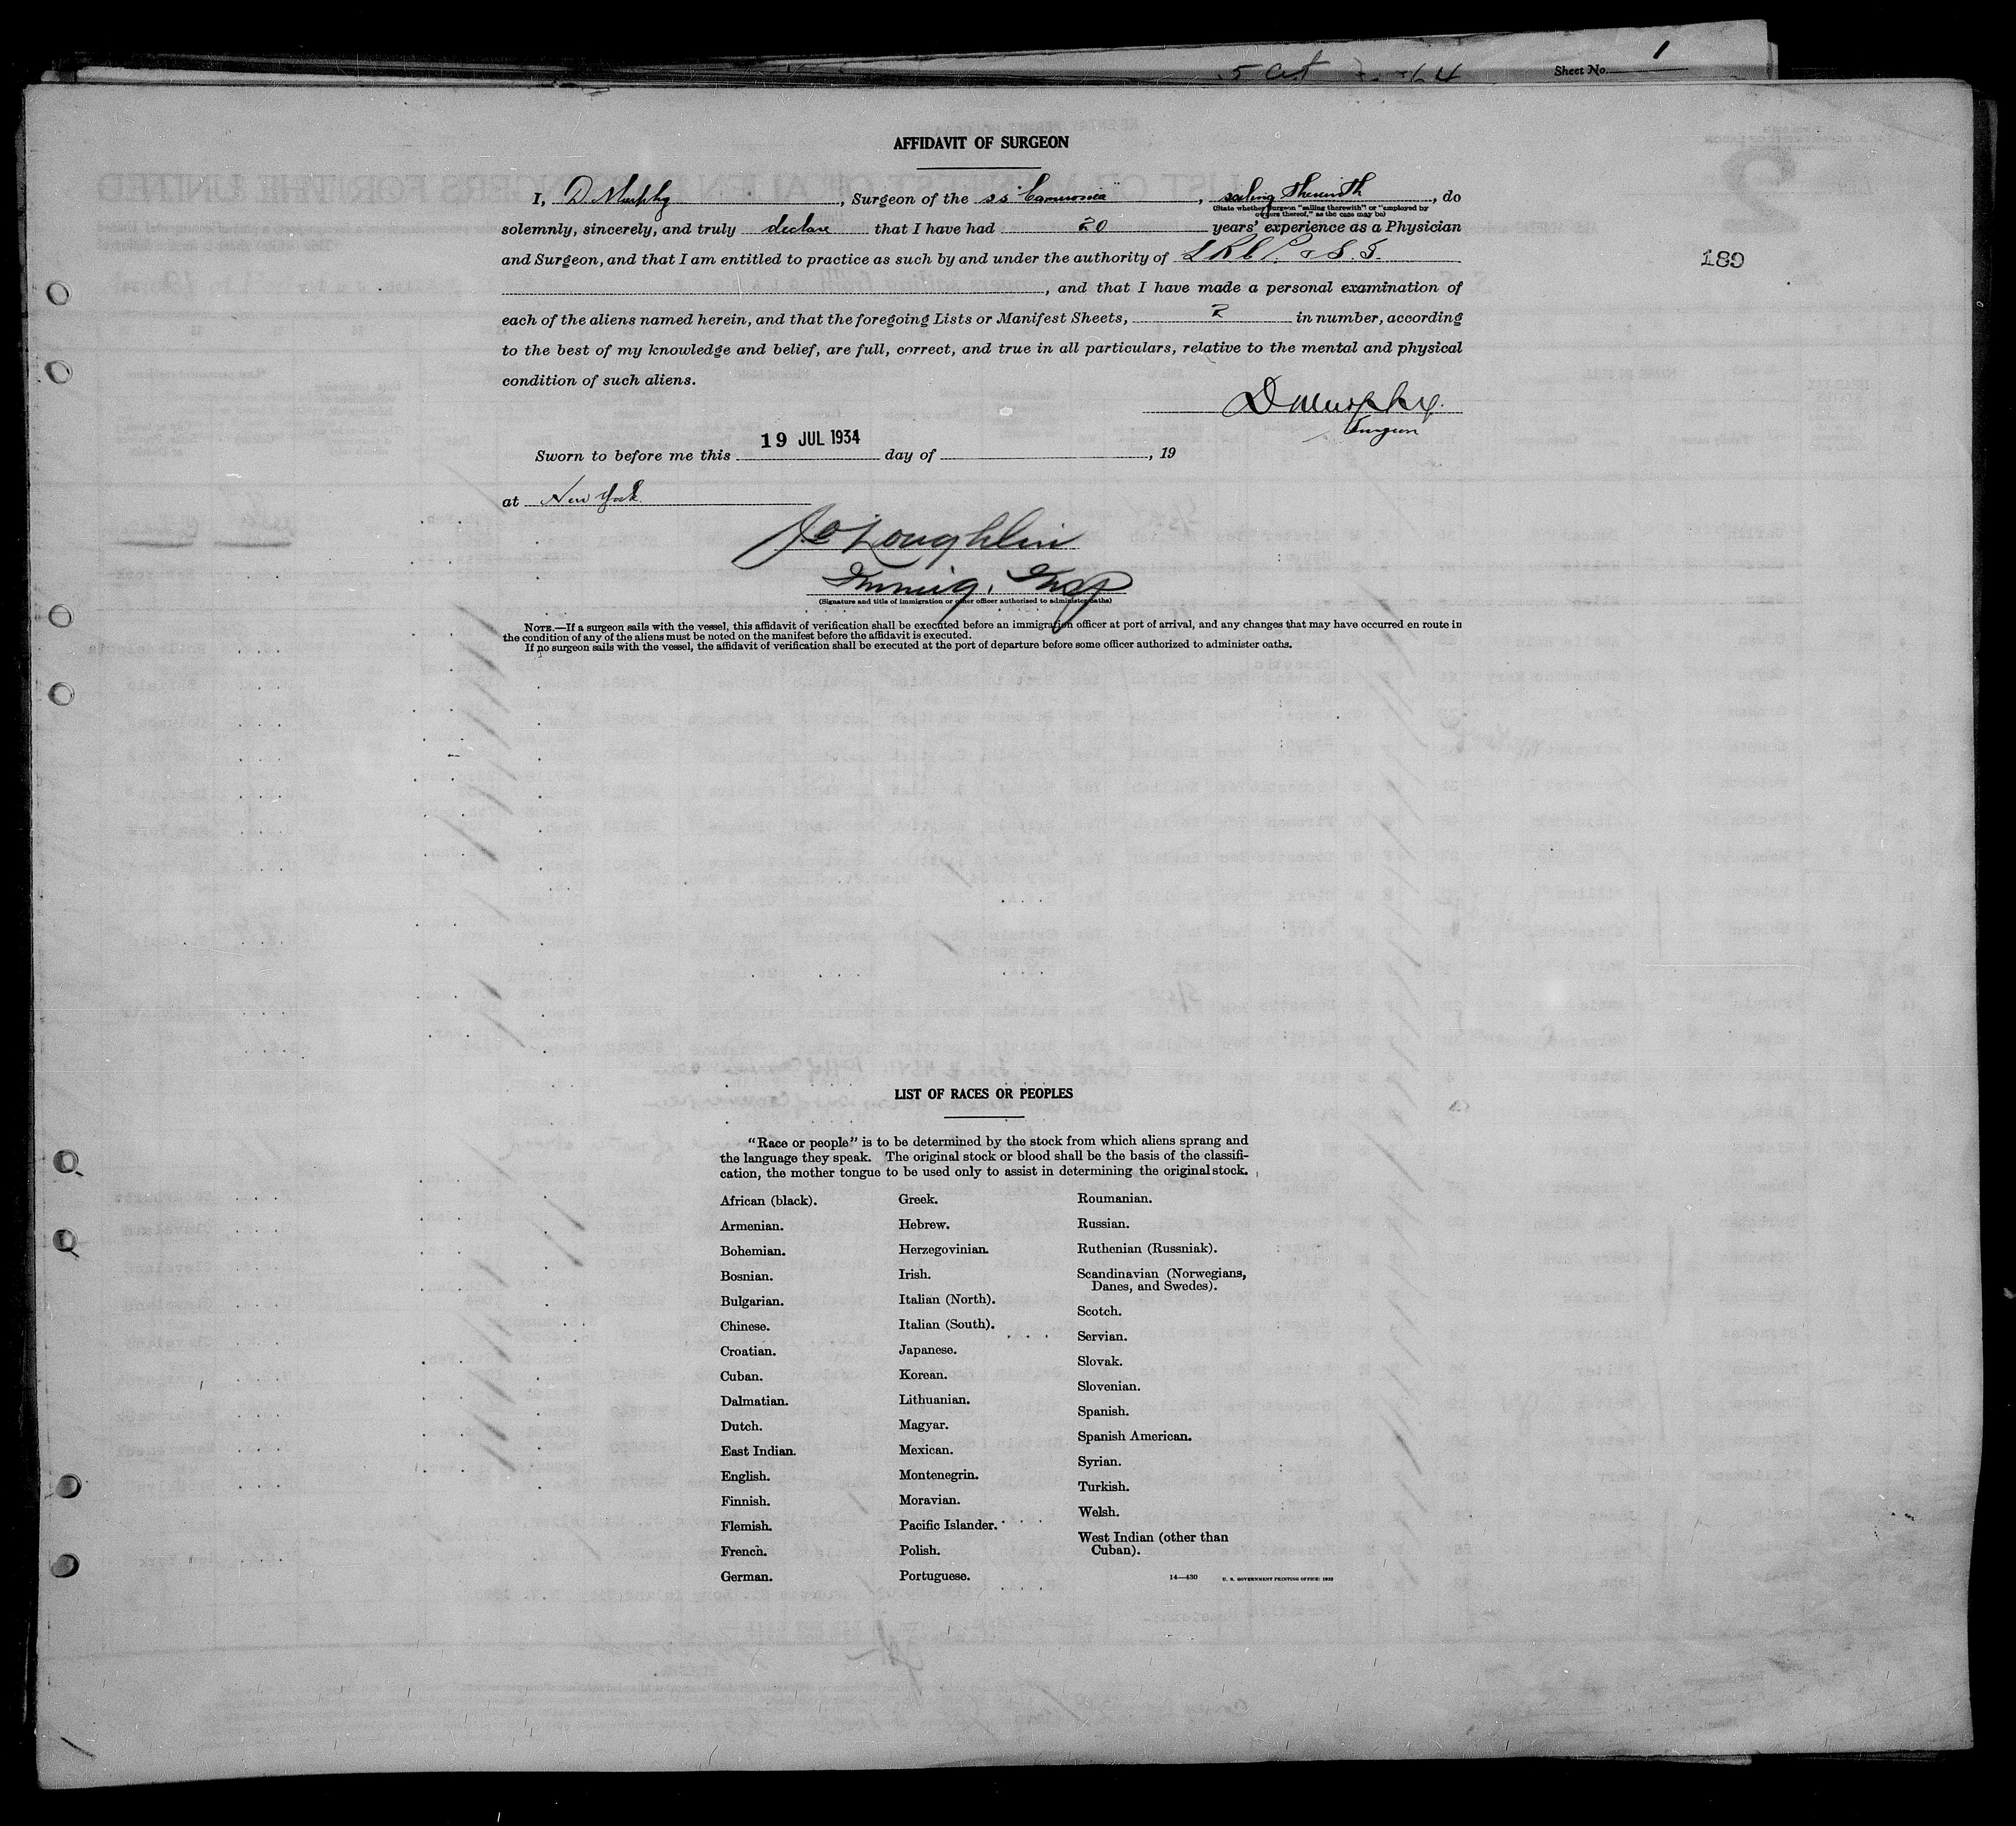 Sheet No. 1
AFFIDAVIT OF SURGEON
I, D Murphy, Surgeon of the ss "Cameronia", sailing therewith, do
(State whether surgeon "sailing therewith" or "employed by
owners thereof," as the case may be)
solemnly, sincerely, and truly declare that I have had 20 years' experience as a Physician
and Surgeon, and that I am entitled to practice as such by and under the authority of L R C P. & S. I.
189
, and that I have made a personal examination of
each of the aliens named herein, and that the foregoing Lists or Manifest Sheets, 2 in number, according
to the best of my knowledge and belief, are full, correct, and true in all particulars, relative to the mental and physical
condition of such aliens.
D Murphy.
Surgeon
19 JUL 1934
Sworn to before me this day of , 19
at New York
Loughlin
Immig. Insp
(Signature and title of immigration or other officer authorized to administer oaths)
NOTE.—If a surgeon sails with the vessel, this affidavit of verification shall be executed before an immigration officer at port of arrival, and any changes that may have occurred en route in
the condition of any of the aliens must be noted on the manifest before the affidavit is executed.
If no surgeon sails with the vessel, the affidavit of verification shall be executed at the port of departure before some officer authorized to administer oaths.
LIST OF RACES OR PEOPLES
"Race or people" is to be determined by the stock from which aliens sprang and
the language they speak. The original stock or blood shall be the basis of the classifi-
cation, the mother tongue to be used only to assist in determining the original stock.
African (black).
Armenian.
Bohemian.
Bosnian.
Bulgarian.
Chinese.
Croatian.
Cuban.
Dalmatian.
Dutch.
East Indian.
English.
Finnish.
Flemish.
French.
German.
Greek.
Hebrew.
Herzegovinian.
Irish.
Italian (North).
Italian (South).
Japanese.
Korean.
Lithuanian.
Magyar.
Mexican.
Montenegrin.
Moravian.
Pacific Islander.
Polish.
Portuguese.
Roumanian.
Russian.
Ruthenian (Russniak).
Scandinavian (Norwegians,
Danes, and Swedes).
Scotch.
Servian.
Slovak.
Slovenian.
Spanish.
Spanish American.
Syrian.
Turkish.
Welsh.
West Indian (other than
Cuban).
14—430 U. S. GOVERNMENT PRINTING OFFICE: 1932